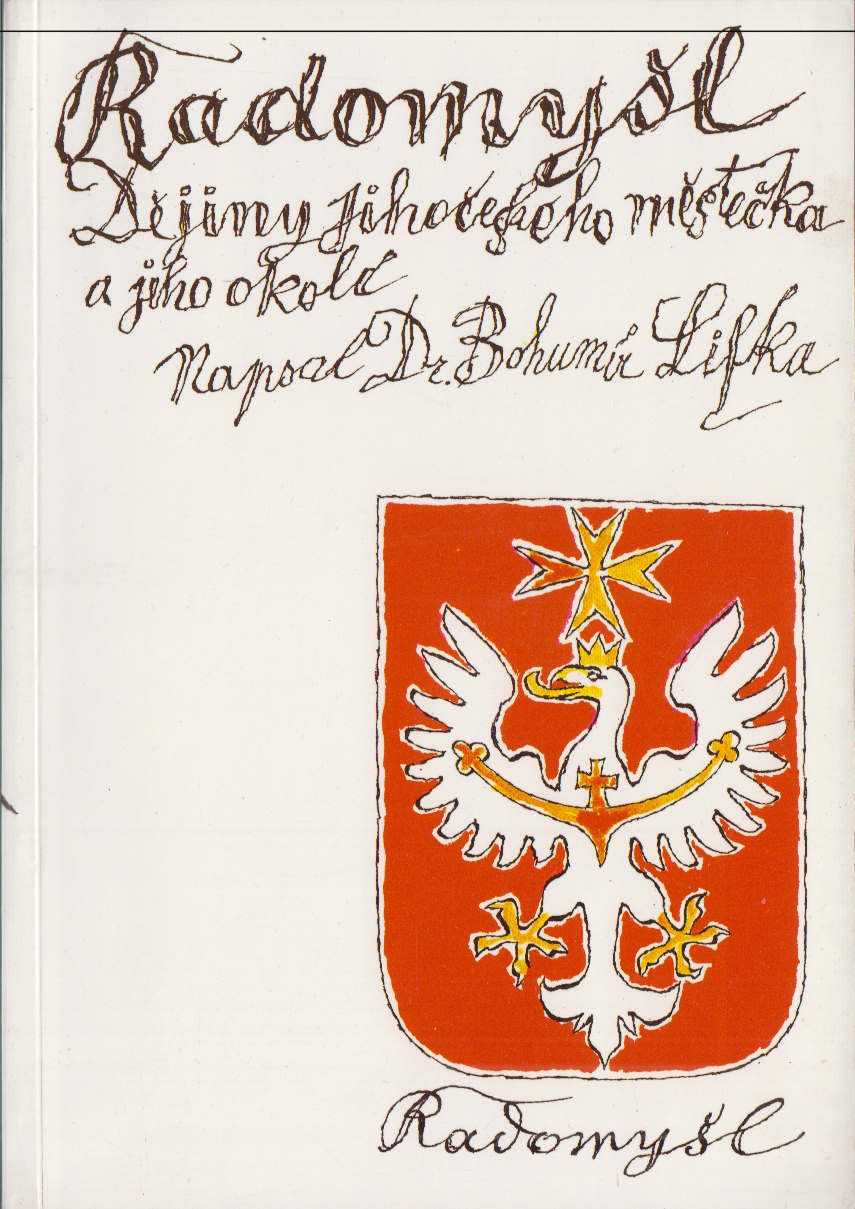 Radomyšl
Dějiny jihočeského městečka
a jiho okolí
Napsal Dr. Bohumír Lifka
Radomyšl